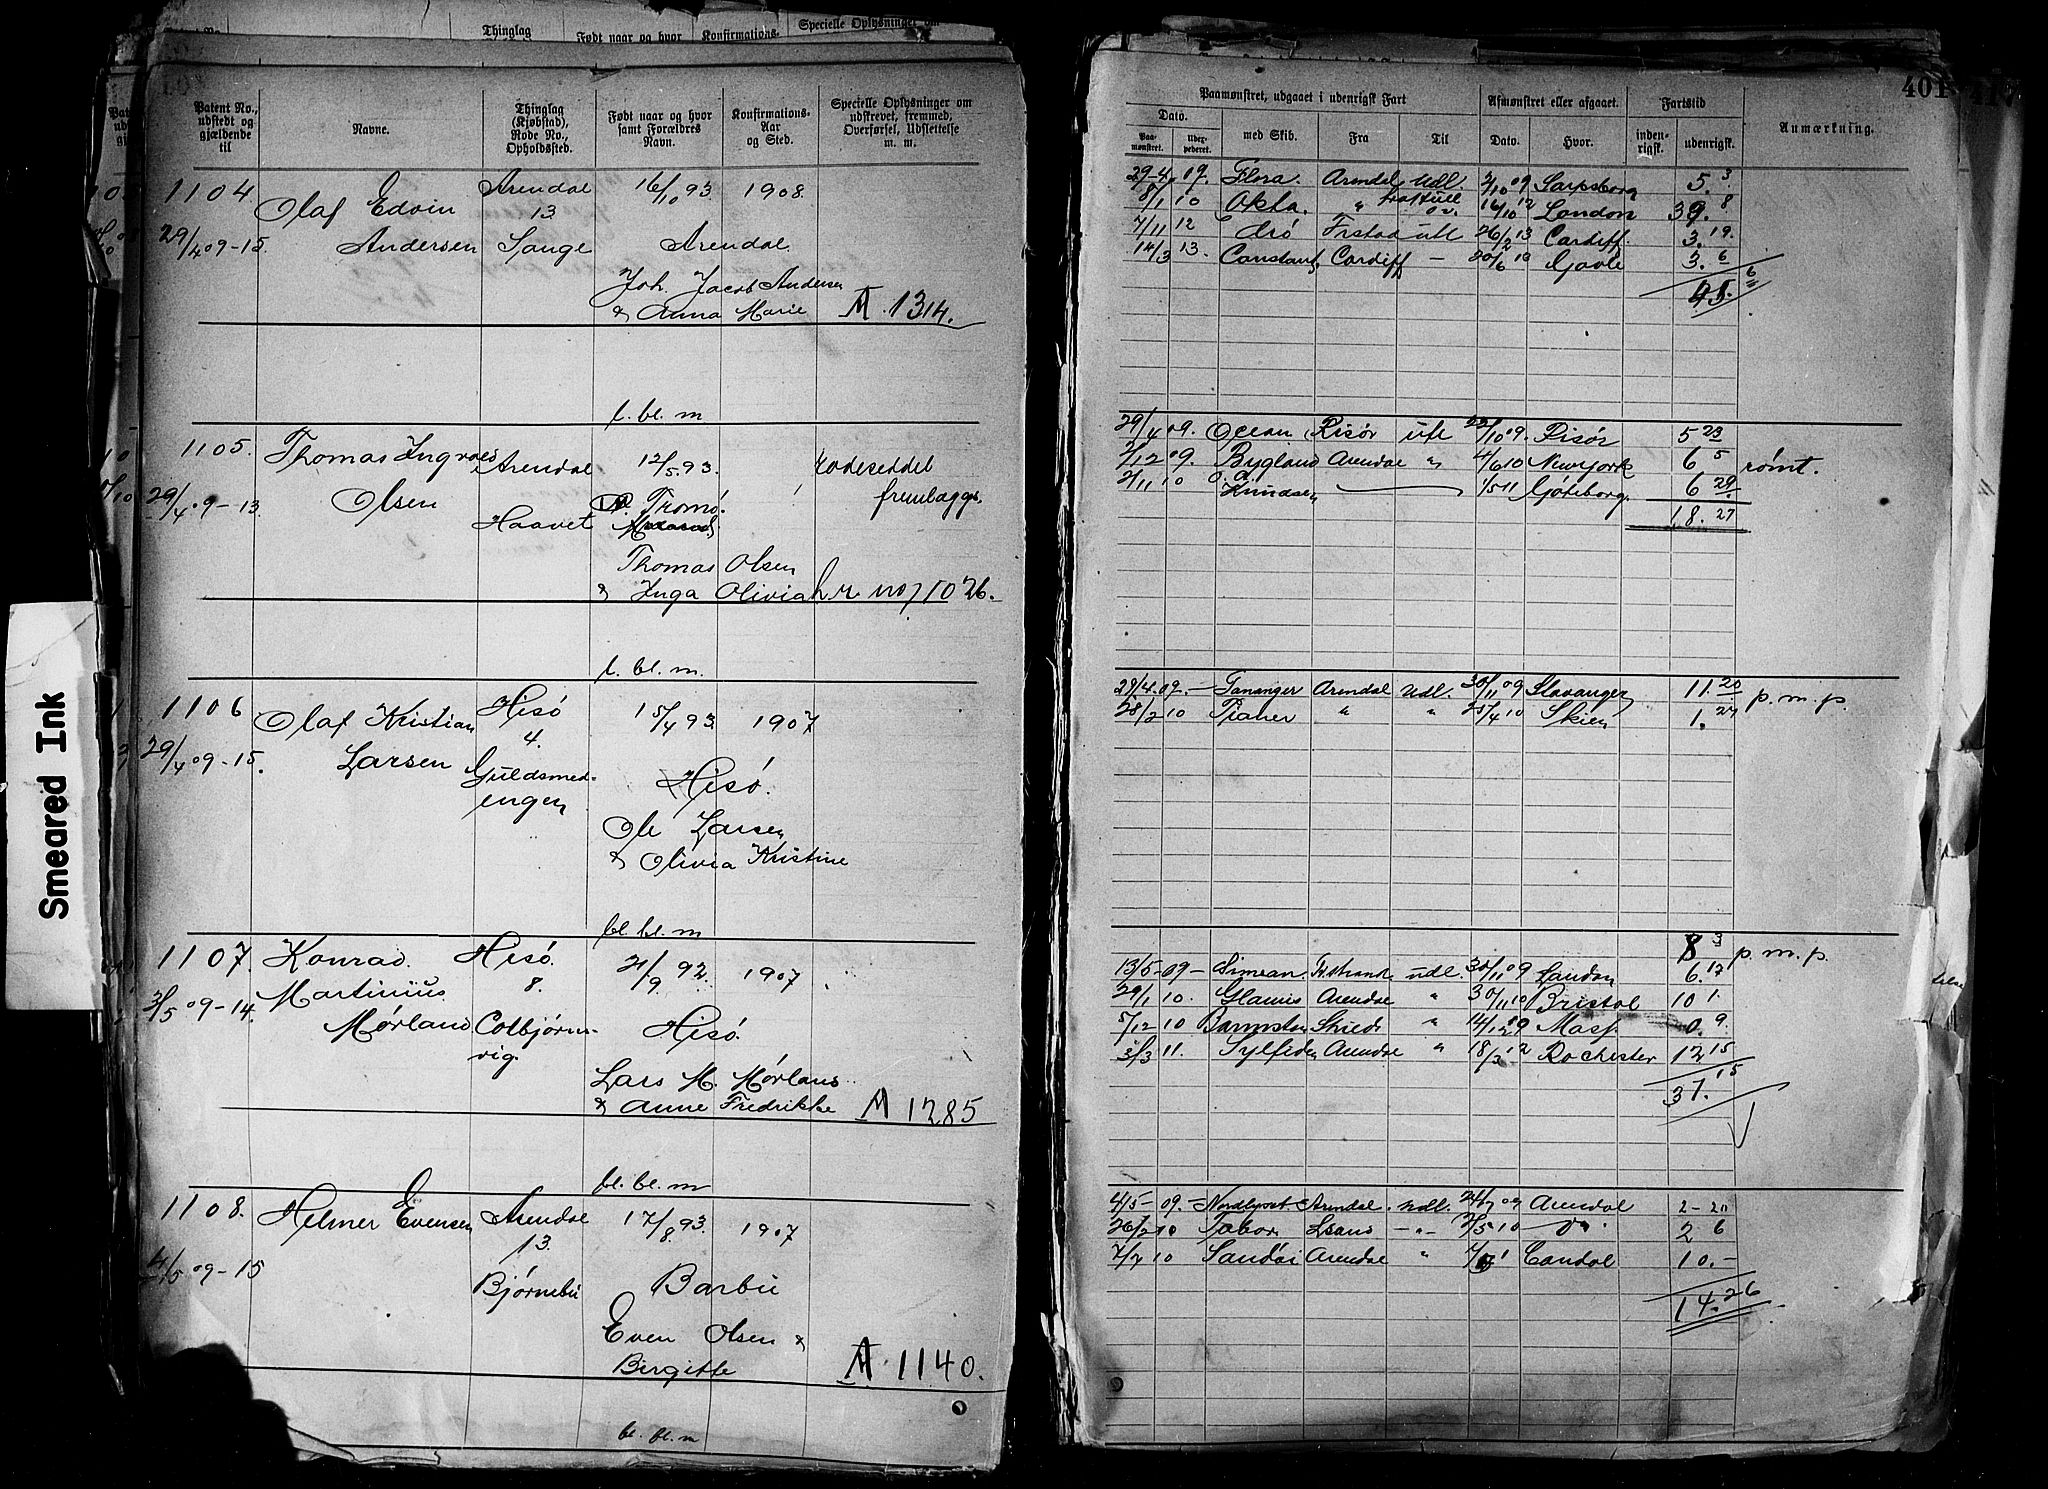 Smeared Ink
Thinglag
Født naar og hvor
Konfirmations-
Specielle Oplysninger om
Patent No.,
udstedt og
gjældende
til
Navne.
Thinglag
(Kjøbstad),
Rode No.,
Opholdssted.
Født naar og hvor
samt Forældres
Navn.
Konfirmations-
Aar
og Sted.
Specielle Oplysninger om
udskrevet, fremmed,
Overførsel, Udslettelse
m. m.
1104
29/4 09-15
Olaf Edvin
Andersen
Arendal
13
Sange
16/10 93
1908
Arendal
Joh. Jacob Andersen
& Anna Marie
A. 1314.
l. bl. m
1105.
29/4 09-13
Thomas Ingvald
Olsen
Arendal
Haavet
12/5 93.
Tromø.
Thomas Olsen
& Inga Olivia
Rodeseddel
fremlægges
hr no 1026.
l. bl. m
1106
29/4 09-15.
Olaf Kristian
Larsen
Hisö
4.
Guldsmed-
engen
15/4 93.
1907
Hisö.
Ole Larsen
& Olivia Kristine
bl. bl. m
1107.
3/5 09-14.
Konrad
Martinius
Mørland
Hisö.
8.
Colbjørns-
vig.
21/9 92.
1907
Hisö.
Lars M. Mørland
& Anne Fredrikke
A 1285
bl. bl. m
1108.
4/5 09-15
Helmer Evensen
Arendal
13.
Bjørnebu
17/8 93.
1907
Barbu
Even Olsen &
Birgitte
A. 1140.
bl. bl. m
401
Paamønstret, udgaaet i udenrigsk Fart
Afmønstret eller afgaaet.
Fartstid
Anmærkning.
Dato.
Paa-
mønstret.
med Skib.
Fra
Til
Dato.
Hvor.
inden-
rigsk.
udenrigsk.
29-4. 09. Flora. Arendal Udl. 2/10 09 Sarpsborg 5. 3
8/1 10 Okla. " 16/10 12 London 39. 8
7/11 12 Ærö Frstad utl 26/2 13 Cardiff. 3. 19.
14/3 13. Constant. Cardiff — 20/6 Gavle 3. 6
6
29/4 09. Ocean Risör utl 22/10 09. Risör 5 23
2/12 09. Bygland Arendal " 4/6 10 NewYork 6 5 rømt.
2/11 10 Knudsen — 1/5 11 Göteborg. 6 29
18. 27
29/4. 09. Tananger Arendal Udl. 30/11 09 Stavanger 11. 20 p. m. p.
28/2 10 " " 25/4 10 Skien 1. 27
8 3 p. m. p.
13/5-09- Simean. udl. 30/11 09 London 6. 17
29/1 10. Glamis Arendal " 30/11 10 Bristol 10 1.
5/12 10 " 14/12 09 0. 9
3/3 11. Sylfiden Arendal " 18/3 12 Rochester 12 15
37. 15
4/5- 09- Nordkyst Arendal Udl. 24/7 09 Arendal 2-20
26/2 10 Tabor 2/5 10 2 6
7/7 10 Arendal " 10.-
14. 26